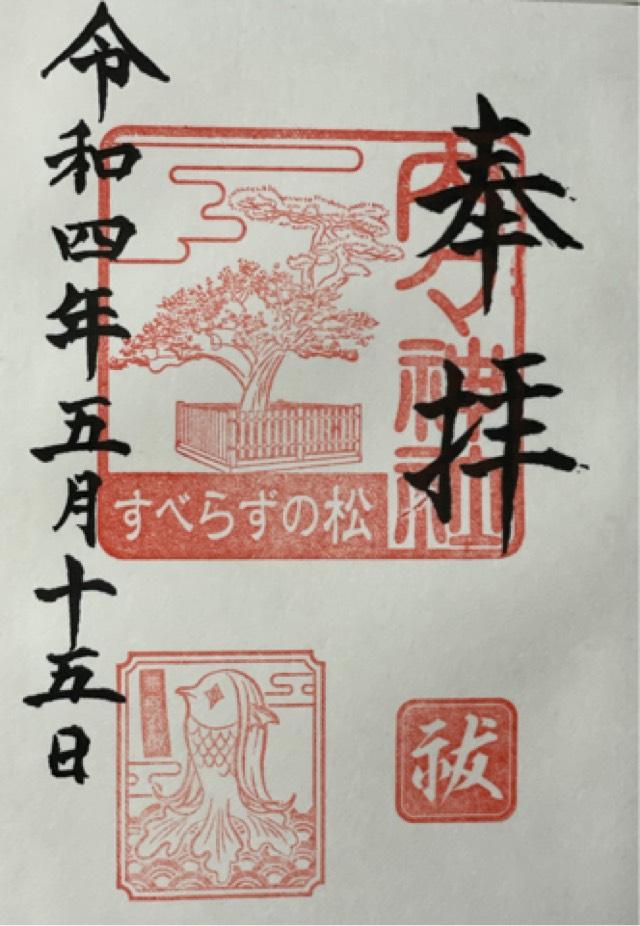 奉拝
内々神社
すべらずの松
祓
令和四年五月十五日